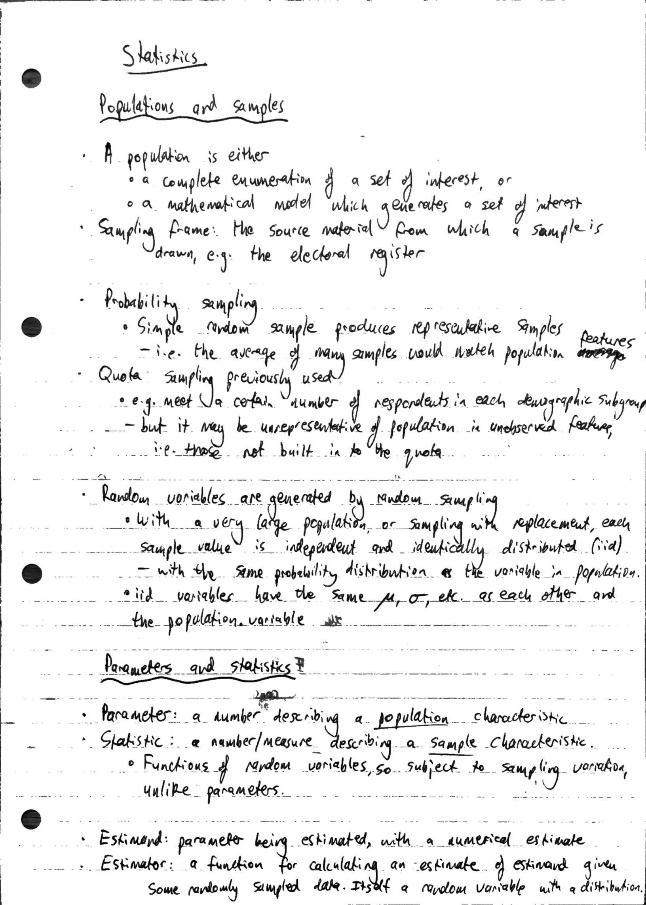 Statistics
Populations and samples
· A population is either
∘ a complete enumeration of a set of interest, or
∘ a mathematical model which generates a set of interest
· Sampling frame: the source material from which a sample is
drawn, e.g. the electoral register
· Probability sampling
∘ Simple random sample produces representative samples
– i.e. the average of many samples would match population features
· Quota sampling previously used
∘ e.g. meet a certain number of respondents in each demographic subgroup
– but it may be unrepresentative of population in unobserved features,
i.e. those not built in to the quota
· Random variables are generated by random sampling
∘ With a very large population, or sampling with replacement, each
sample value is independent and identically distributed (iid)
– with the same probability distribution as the variable in population.
∘ iid variables have the same μ, σ, etc. as each other and
the population variable
Parameters and statistics
· Parameter: a number describing a population characteristic
· Statistic: a number/measure describing a sample characteristic.
∘ Functions of random variables, so subject to sampling variation,
unlike parameters.
· Estimand: parameter being estimated, with a numerical estimate
· Estimator: a function for calculating an estimate of estimand given
some randomly sampled data. Itself a random variable with a distribution.